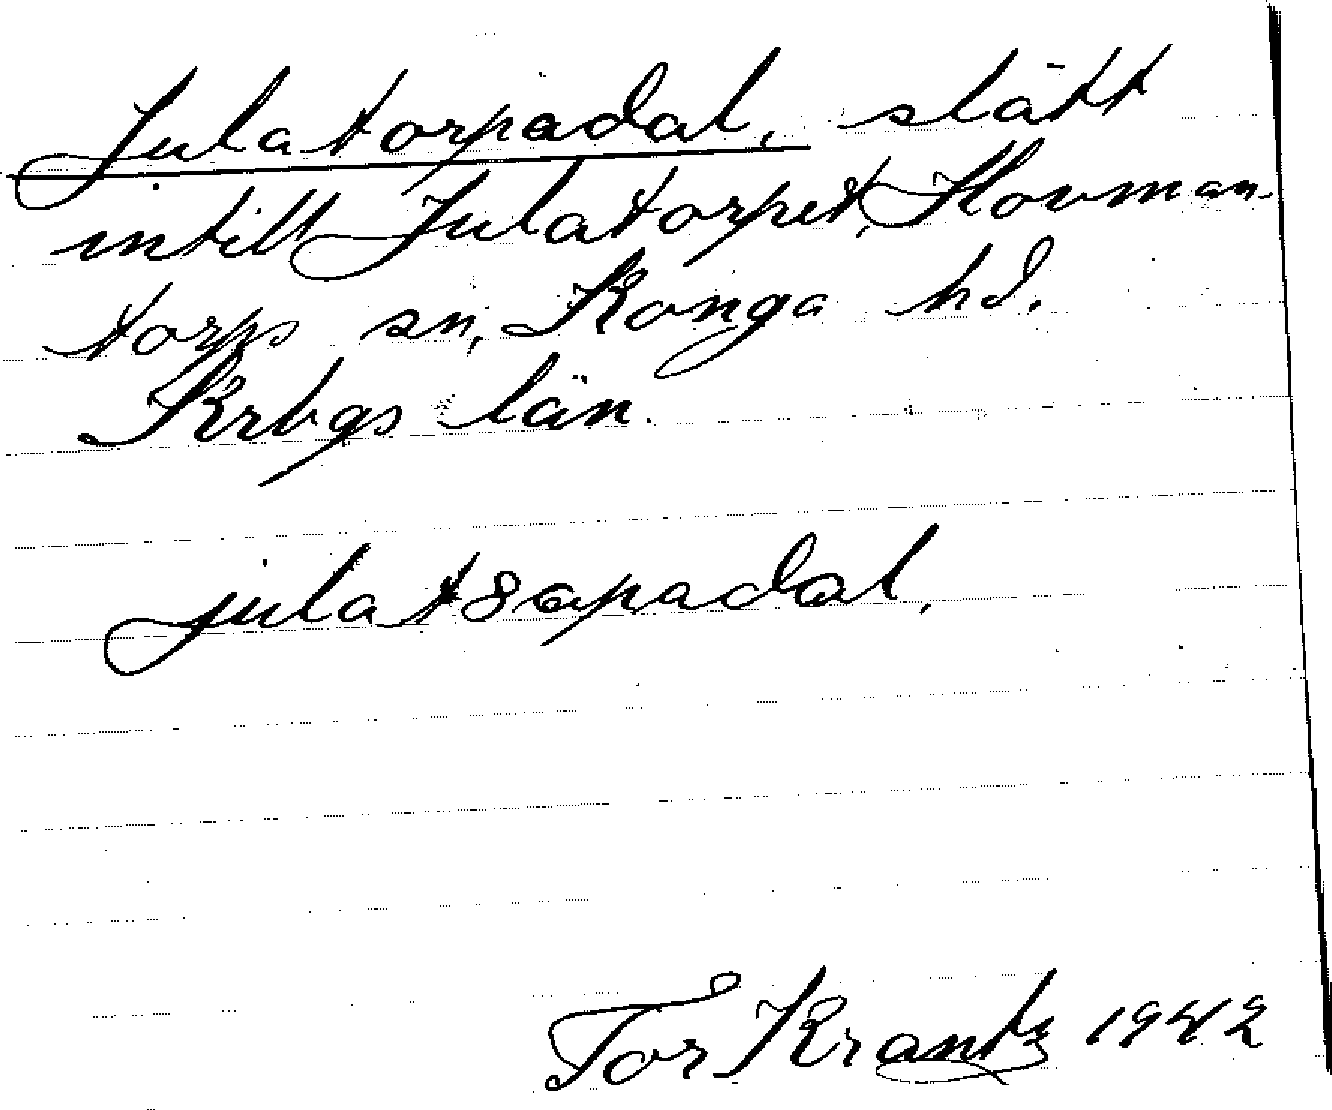 Julatorpadal, slätt
intill Julatorpet, Hovman-
torps sn, Konga hd.
Krbgs län.
julat8apadal,
Tor Krantz 1942